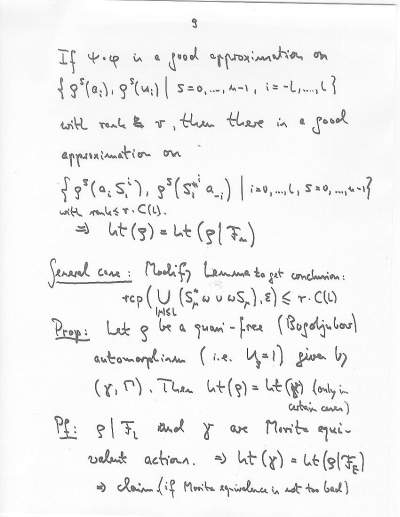 9
If ψ∘φ is a good approximation on
{ρ^s(a_i), ρ^s(u_i) | s=0,...,n-1, i=-l,...,l}
with rank r, then there is a good
approximation on
{ρ^s(a_i S_1^i), ρ^s(S_1^{*i} a_{-i}) | i=0,...,l, s=0,...,n-1}
with rank ≤ r·C(l).
⇒ ht(ρ) = ht(ρ|F_n)
General case: Modify Lemma to get conclusion:
rcp(⋃_{|μ|≤l} (S_μ^* ω ∪ ω S_μ), ε) ≤ r·C(l)
Prop: Let ρ be a quasi-free (Bogoljubov)
automorphism (i.e. =1) given by
(γ, Γ). Then ht(ρ) = ht(γ) (only in
certain cases)
Pf: ρ|F and γ are Morita equi-
valent actions. ⇒ ht(γ) = ht(ρ|F_E)
⇒ claim (if Morita equivalence is not too bad)